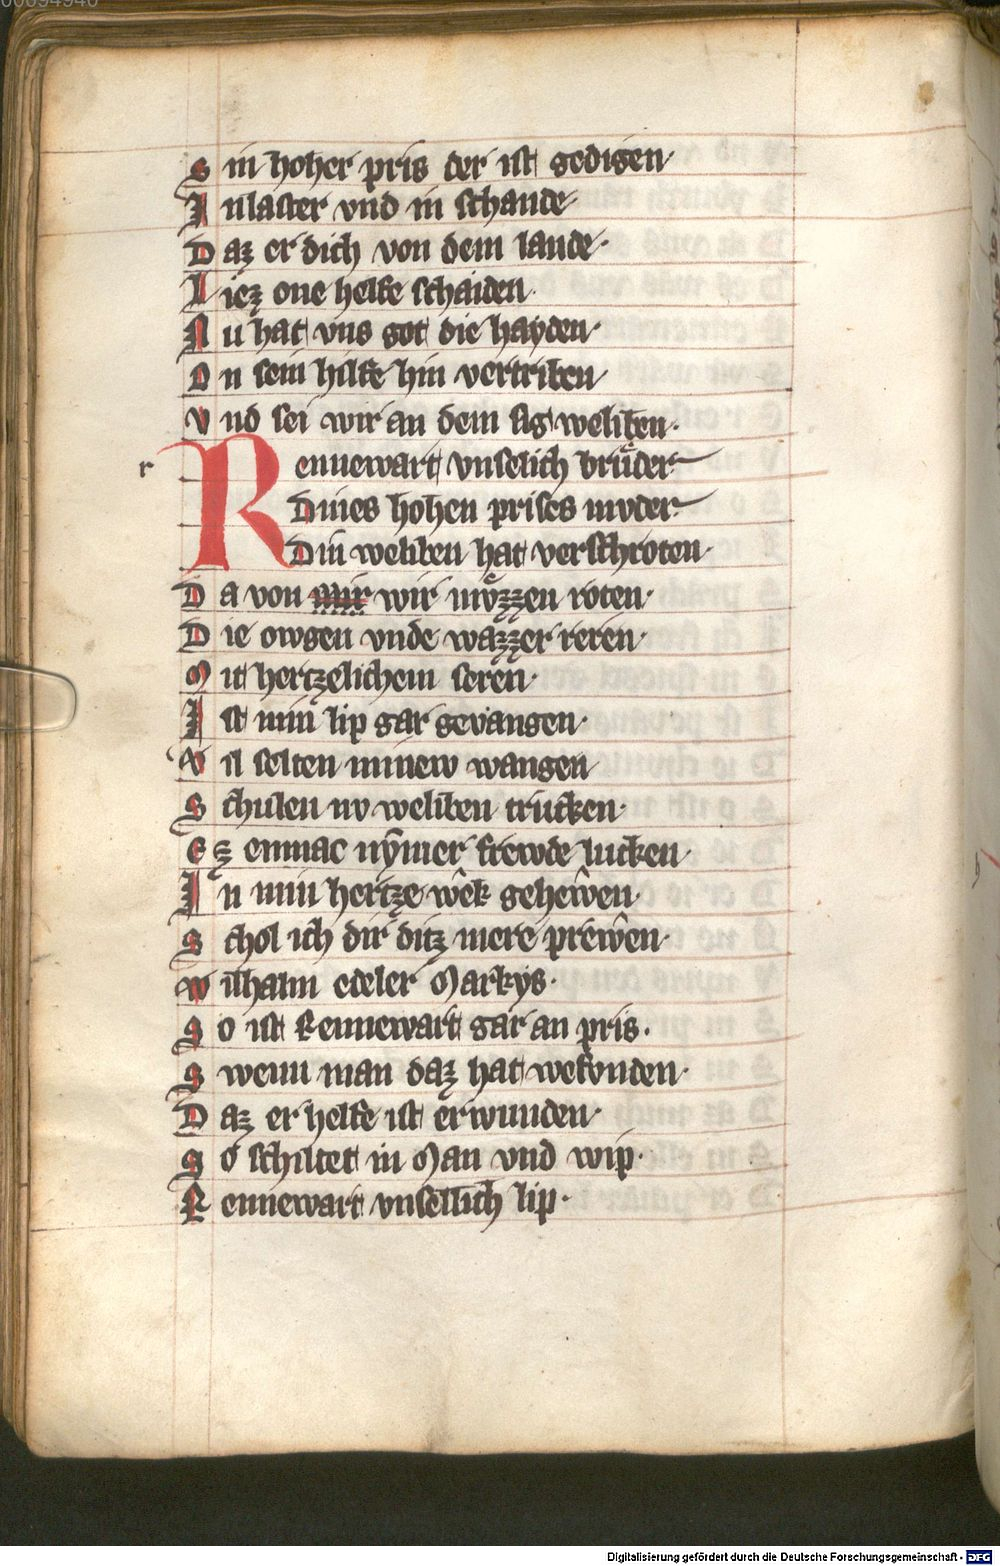 Sin hoher pris der ist gedigen·
In laster vnd in schande·
Daz er dich von dem lande·
Liez one helfe schaiden·
Nu hat vns got die hayden·
On sein hilfe hin vertriben
Vnd sei wir an dem sig weliben·
r Rennewart vnselich brůder
Dines hohen prises mvder
Din weliben hat verschroten·
Da von mir wir mvͦzzen roten·
Die owgen vnde wazzer reren·
Mit hertzelichem seren·
Ist min lip gar gevangen·
Vil selten minew wangen
Schulen nv weliben trucken·
Ez enmac nymer frewde lucken
In min hertze wêk gehewen·
Schol ich dir ditz mere prewen·
Wilhalm edeler Markys·
So ist Rennewart gar an pris·
Swenn man daz hat wefvnden·
Daz er helfe ist erwunden·
So schiltet in Man vnd wip·
Rennewart vnsellich lip·
Digitalisierung gefördert durch die Deutsche Forschungsgemeinschaft - DFG